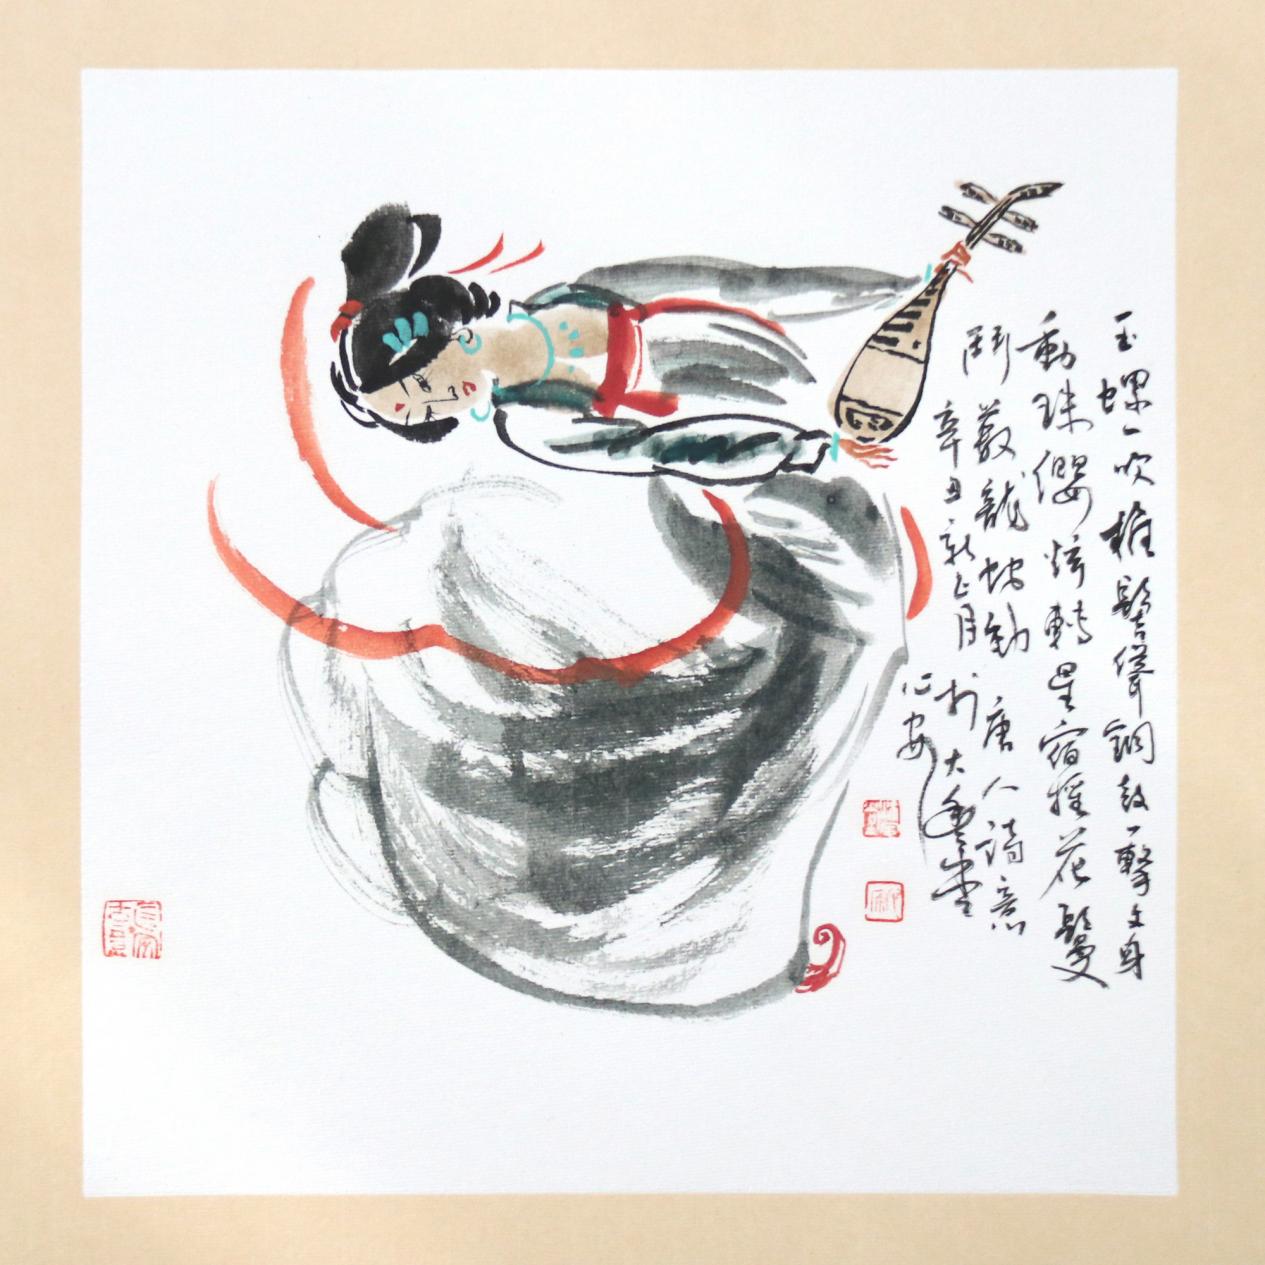 玉螺一吹椎髻聳銅鼓一擊文身
動珠纓炫轉星宿搖花鬘
鬥藪龍蛇動唐人詩意
辛丑新正月於大堂
心安